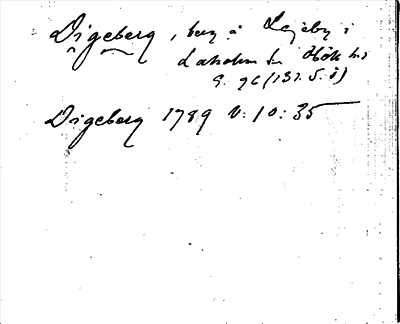 Digeberg, berg å Lejeby i
Laholms ln Höks hd
G. 96 (131. S. ö)
Digeberg 1789 V: 10: 35